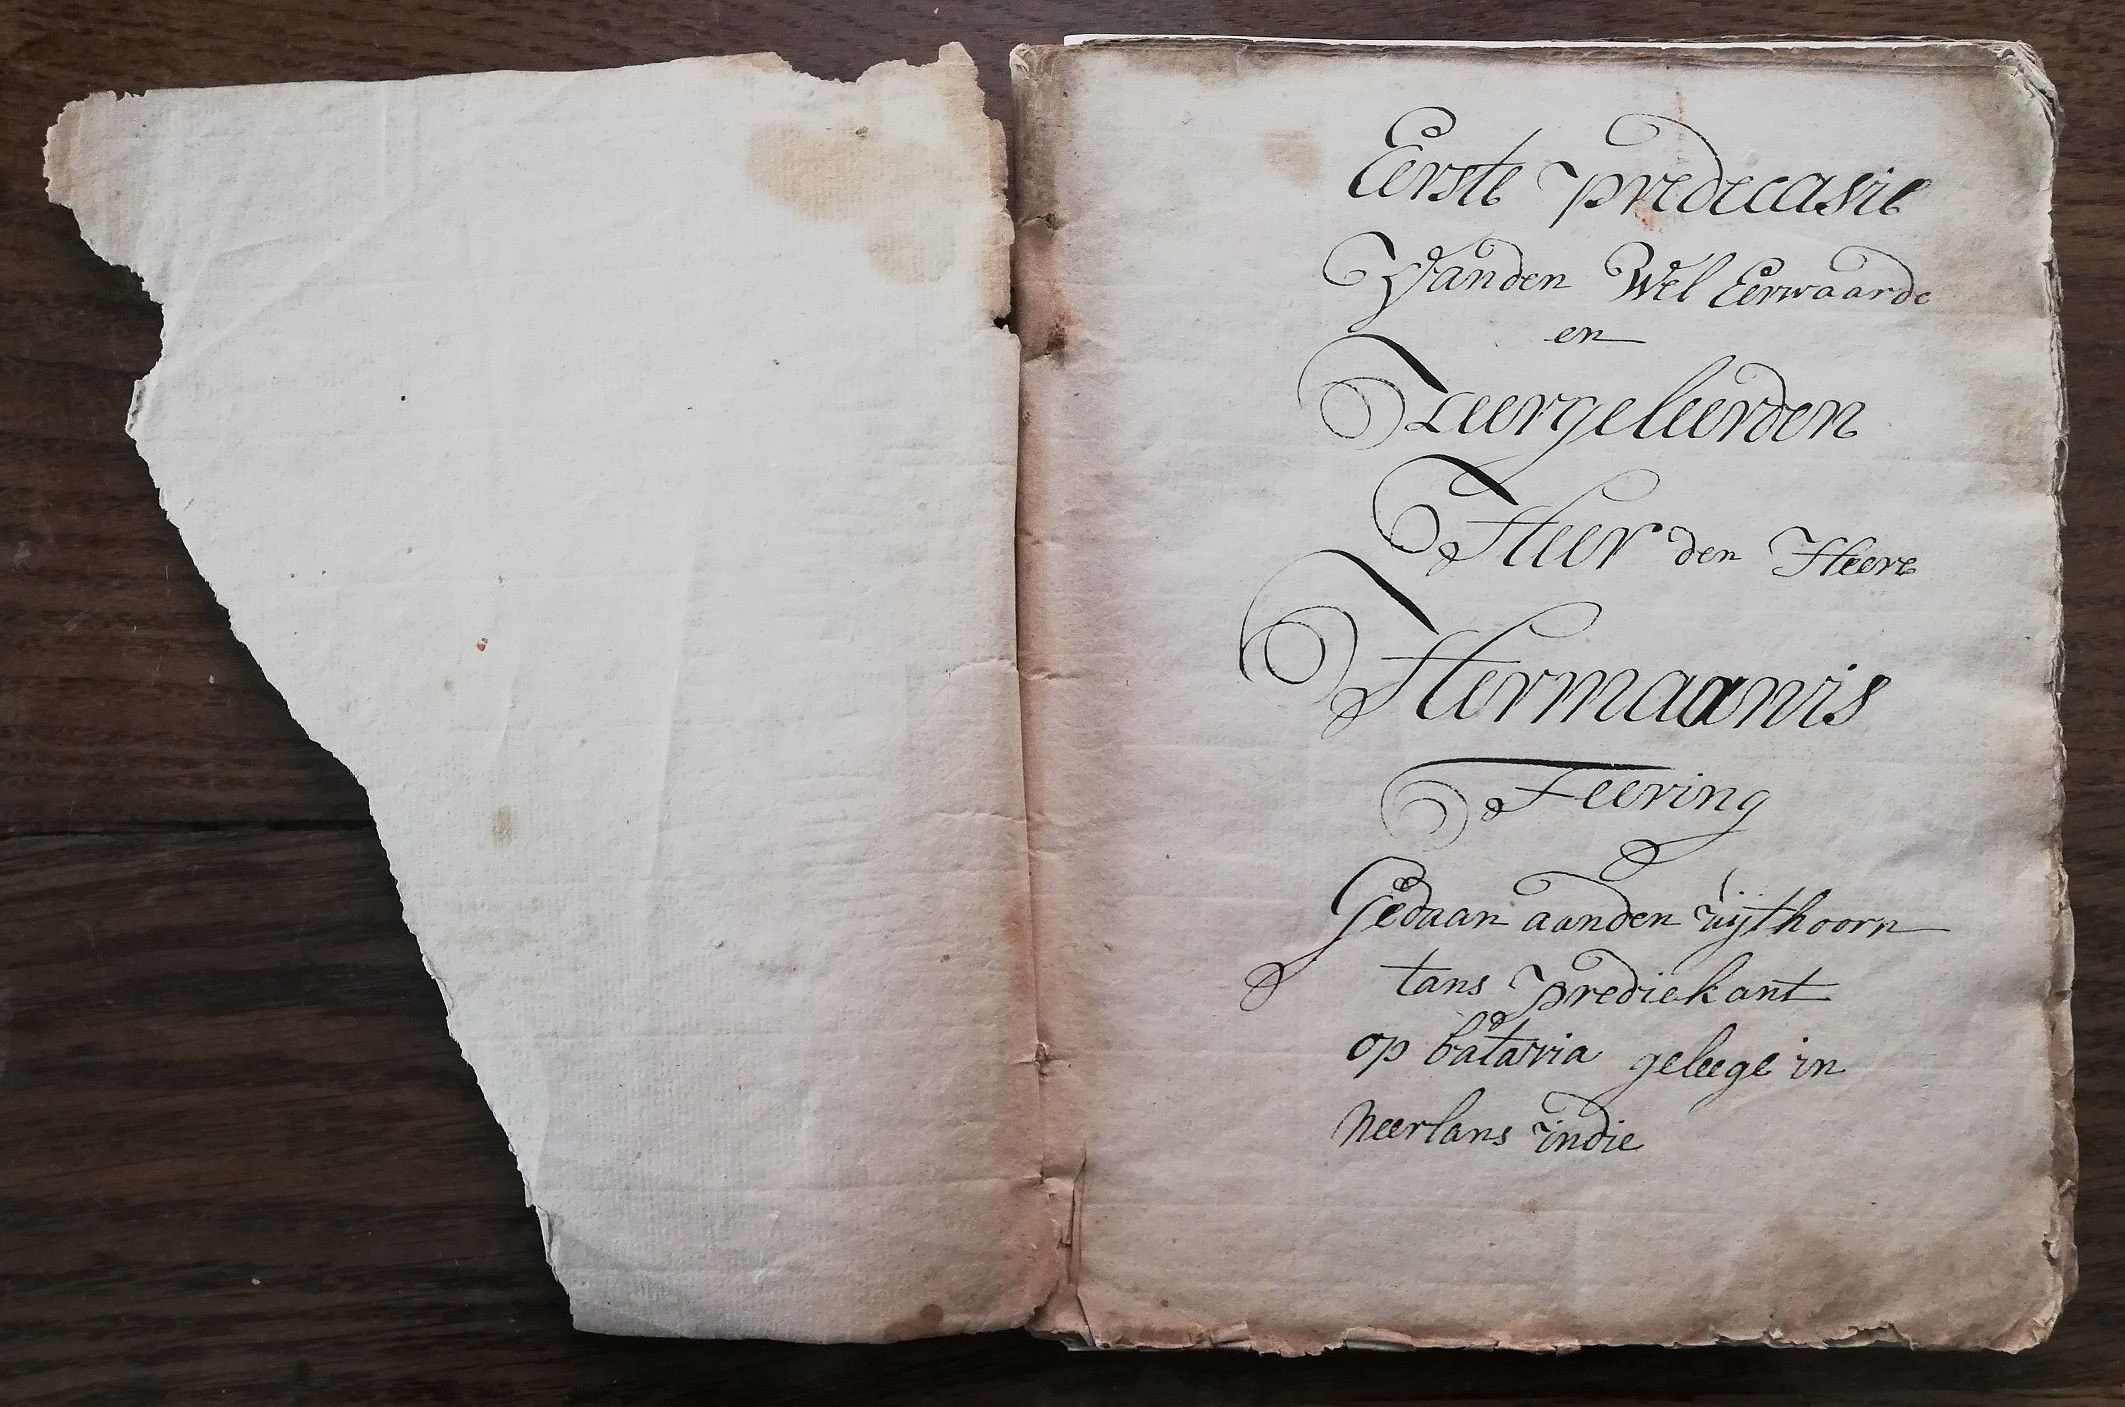 Eerste predecasie
Van den Wel Eerwaarde
en
Zeergeleerden
Heer den Heere
Hermaanis
Feering
Gedaan aanden uijthoorn
tans prediekant
op batavia geleege in
neerlans indie